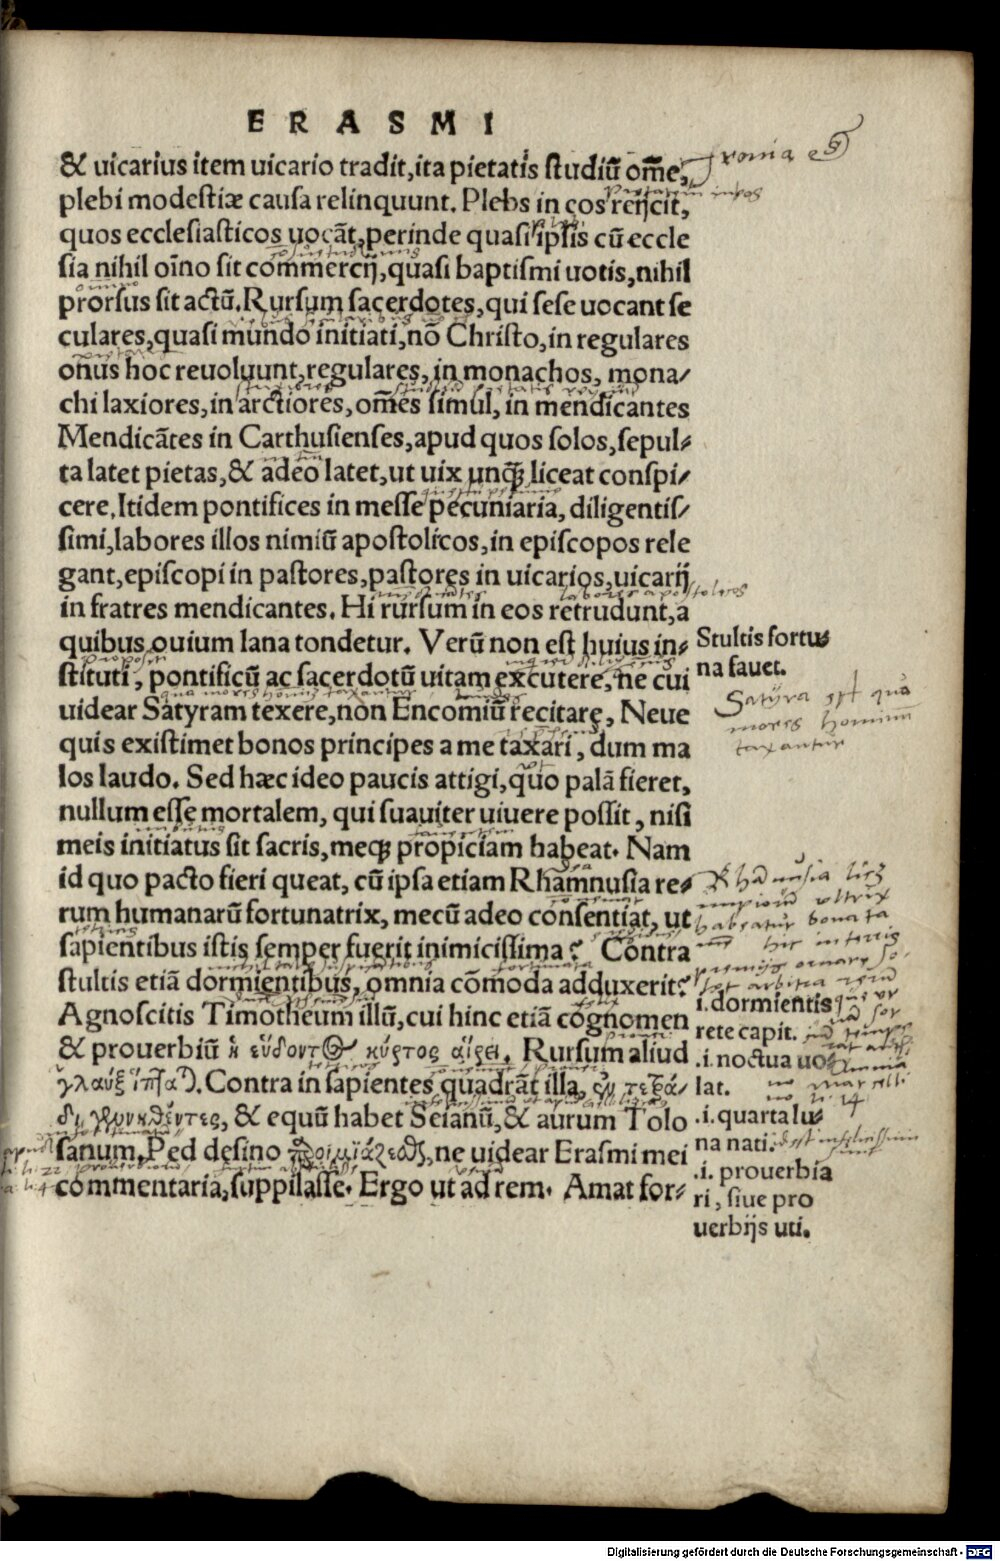 ERASMI
& uicarius item uicario tradit, ita pietatis studiū om̄e,
plebi modestiæ causa relinquunt. Plebs in eos reijcit,
quos ecclesiasticos uocāt, perinde quasi ipsis cū eccle
sia nihil oīno sit commercij, quasi baptismi uotis, nihil
prorsus sit actū. Rursum sacerdotes, qui sese uocant se
culares, quasi mundo initiati, nō Christo, in regulares
onus hoc reuoluunt, regulares, in monachos, mona/
chi laxiores, in arctiores, om̄es simul, in mendicantes
Mendicātes in Carthusienses, apud quos solos, sepul-
ta latet pietas, & adeo latet, ut uix unq̄ꝫ liceat conspi/
cere. Itidem pontifices in messe pecuniaria, diligentis/
simi, labores illos nimiū apostolicos, in episcopos rele
gant, episcopi in pastores, pastores in uicarios, uicarij
in fratres mendicantes. Hi rursum in eos retrudunt, a
quibus ouium lana tondetur. Verū non est huius in-
stituti, pontificū ac sacerdotū uitam excutere, ne cui
uidear Satyram texere, non Encomiū recitare, Neue
quis existimet bonos principes a me taxari, dum ma
los laudo. Sed hæc ideo paucis attigi, quo palā fieret,
nullum esse mortalem, qui suauiter uiuere possit, nisi
meis initiatus sit sacris, meqꝫ propiciam habeat. Nam
id quo pacto fieri queat, cū ipsa etiam Rhamnusia re-
rum humanarū fortunatrix, mecū adeo consentiat, ut
sapientibus istis semper fuerit inimicissima? Contra
stultis etiā dormientibus, omnia cōmoda adduxerit?
Agnoscitis Timotheum illū, cui hinc etiā cognomen
& prouerbiū ἡ εὕδοντος κύρτος αἱρεῖ. Rursum aliud
γλαὺξ ἵπταται. Contra in sapientes quadrāt illa, ἐν τετρά/
δι γεννηθέντες, & equū habet Seianū, & aurum Tolo
sanum. Ped desino παροιμιάζεσθαι, ne uidear Erasmi mei
commentaria, suppilasse. Ergo ut ad rem. Amat for-
Ironia
Stultis fortu
na fauet.
Satyra est qua
mores hominum
taxantur
i. dormientis
rete capit.
.i. noctua uo
lat.
.i. quarta lu
na nati.
.i. prouerbia
ri, siue pro
uerbijs uti.
Digitalisierung gefördert durch die Deutsche Forschungsgemeinschaft - DFG